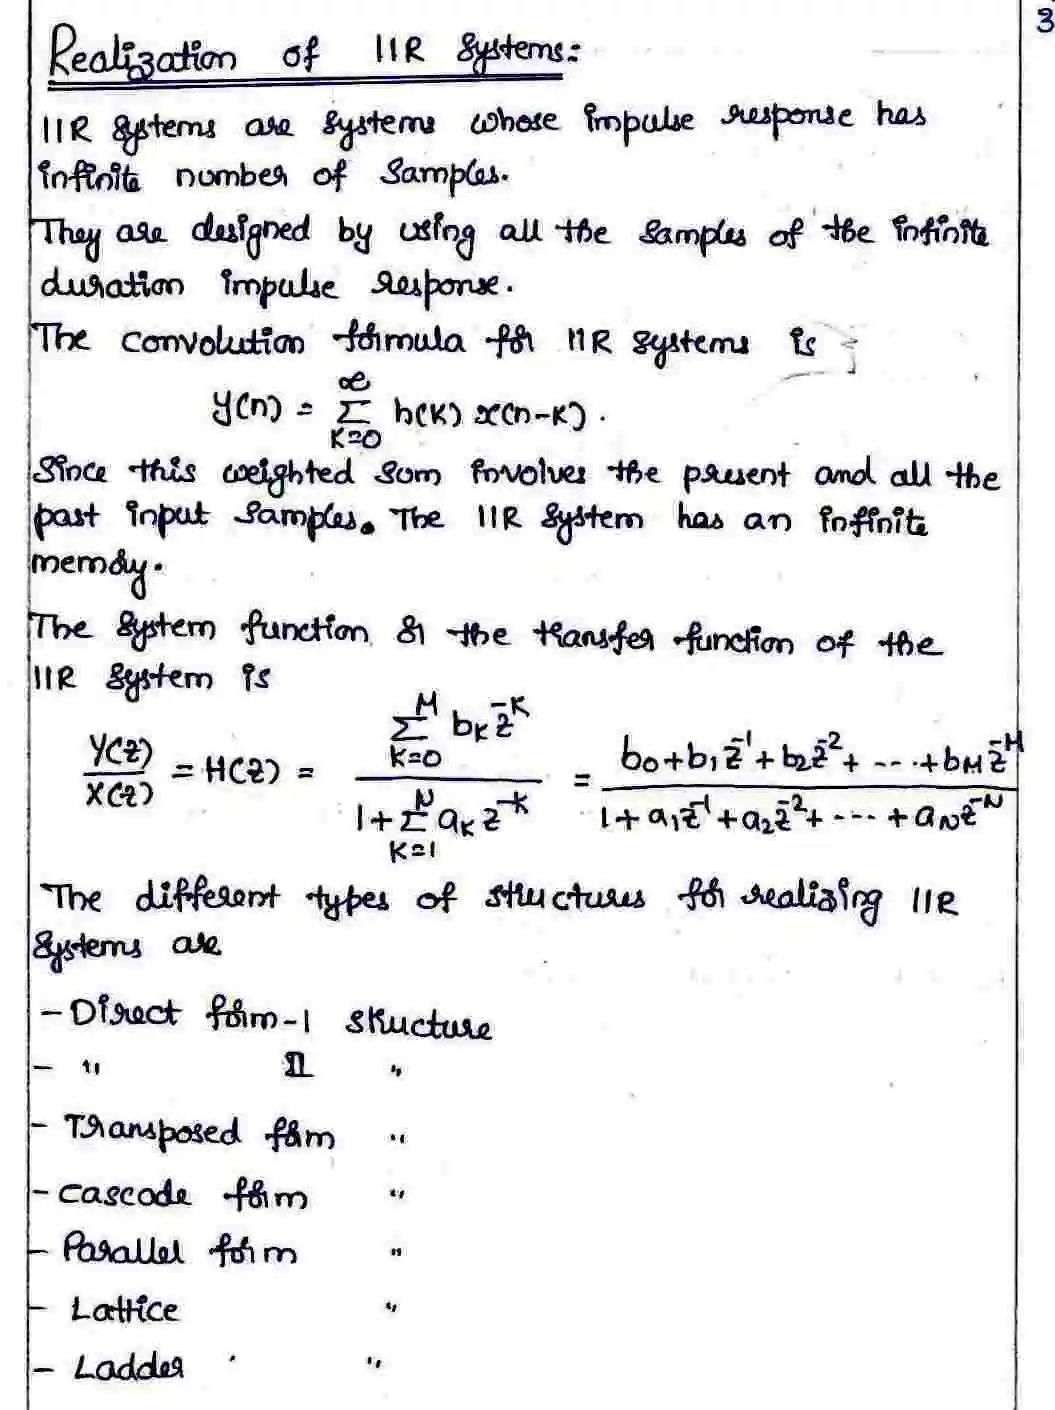 3
Realization of IIR Systems:
IIR Systems are systems whose impulse response has
infinite number of Samples.
They are designed by using all the samples of the infinite
duration impulse response.
The convolution formula for IIR systems is
y(n) = ∞ Σ K=0 h(K) x(n-K).
Since this weighted sum involves the present and all the
past input samples. The IIR System has an infinite
memory.
The system function or the transfer function of the
IIR System is
Y(z)/X(z) = H(z) = (Σ K=0 M bK z^-K) / (1 + Σ K=1 N aK z^-K) = (b0 + b1 z^-1 + b2 z^-2 + --- + bM z^-M) / (1 + a1 z^-1 + a2 z^-2 + ---- + aN z^-N)
The different types of structures for realizing IIR
Systems are
- Direct form-I structure
- " II "
- Transposed form "
- cascode form "
- Parallel form "
- Lattice "
- Ladder "